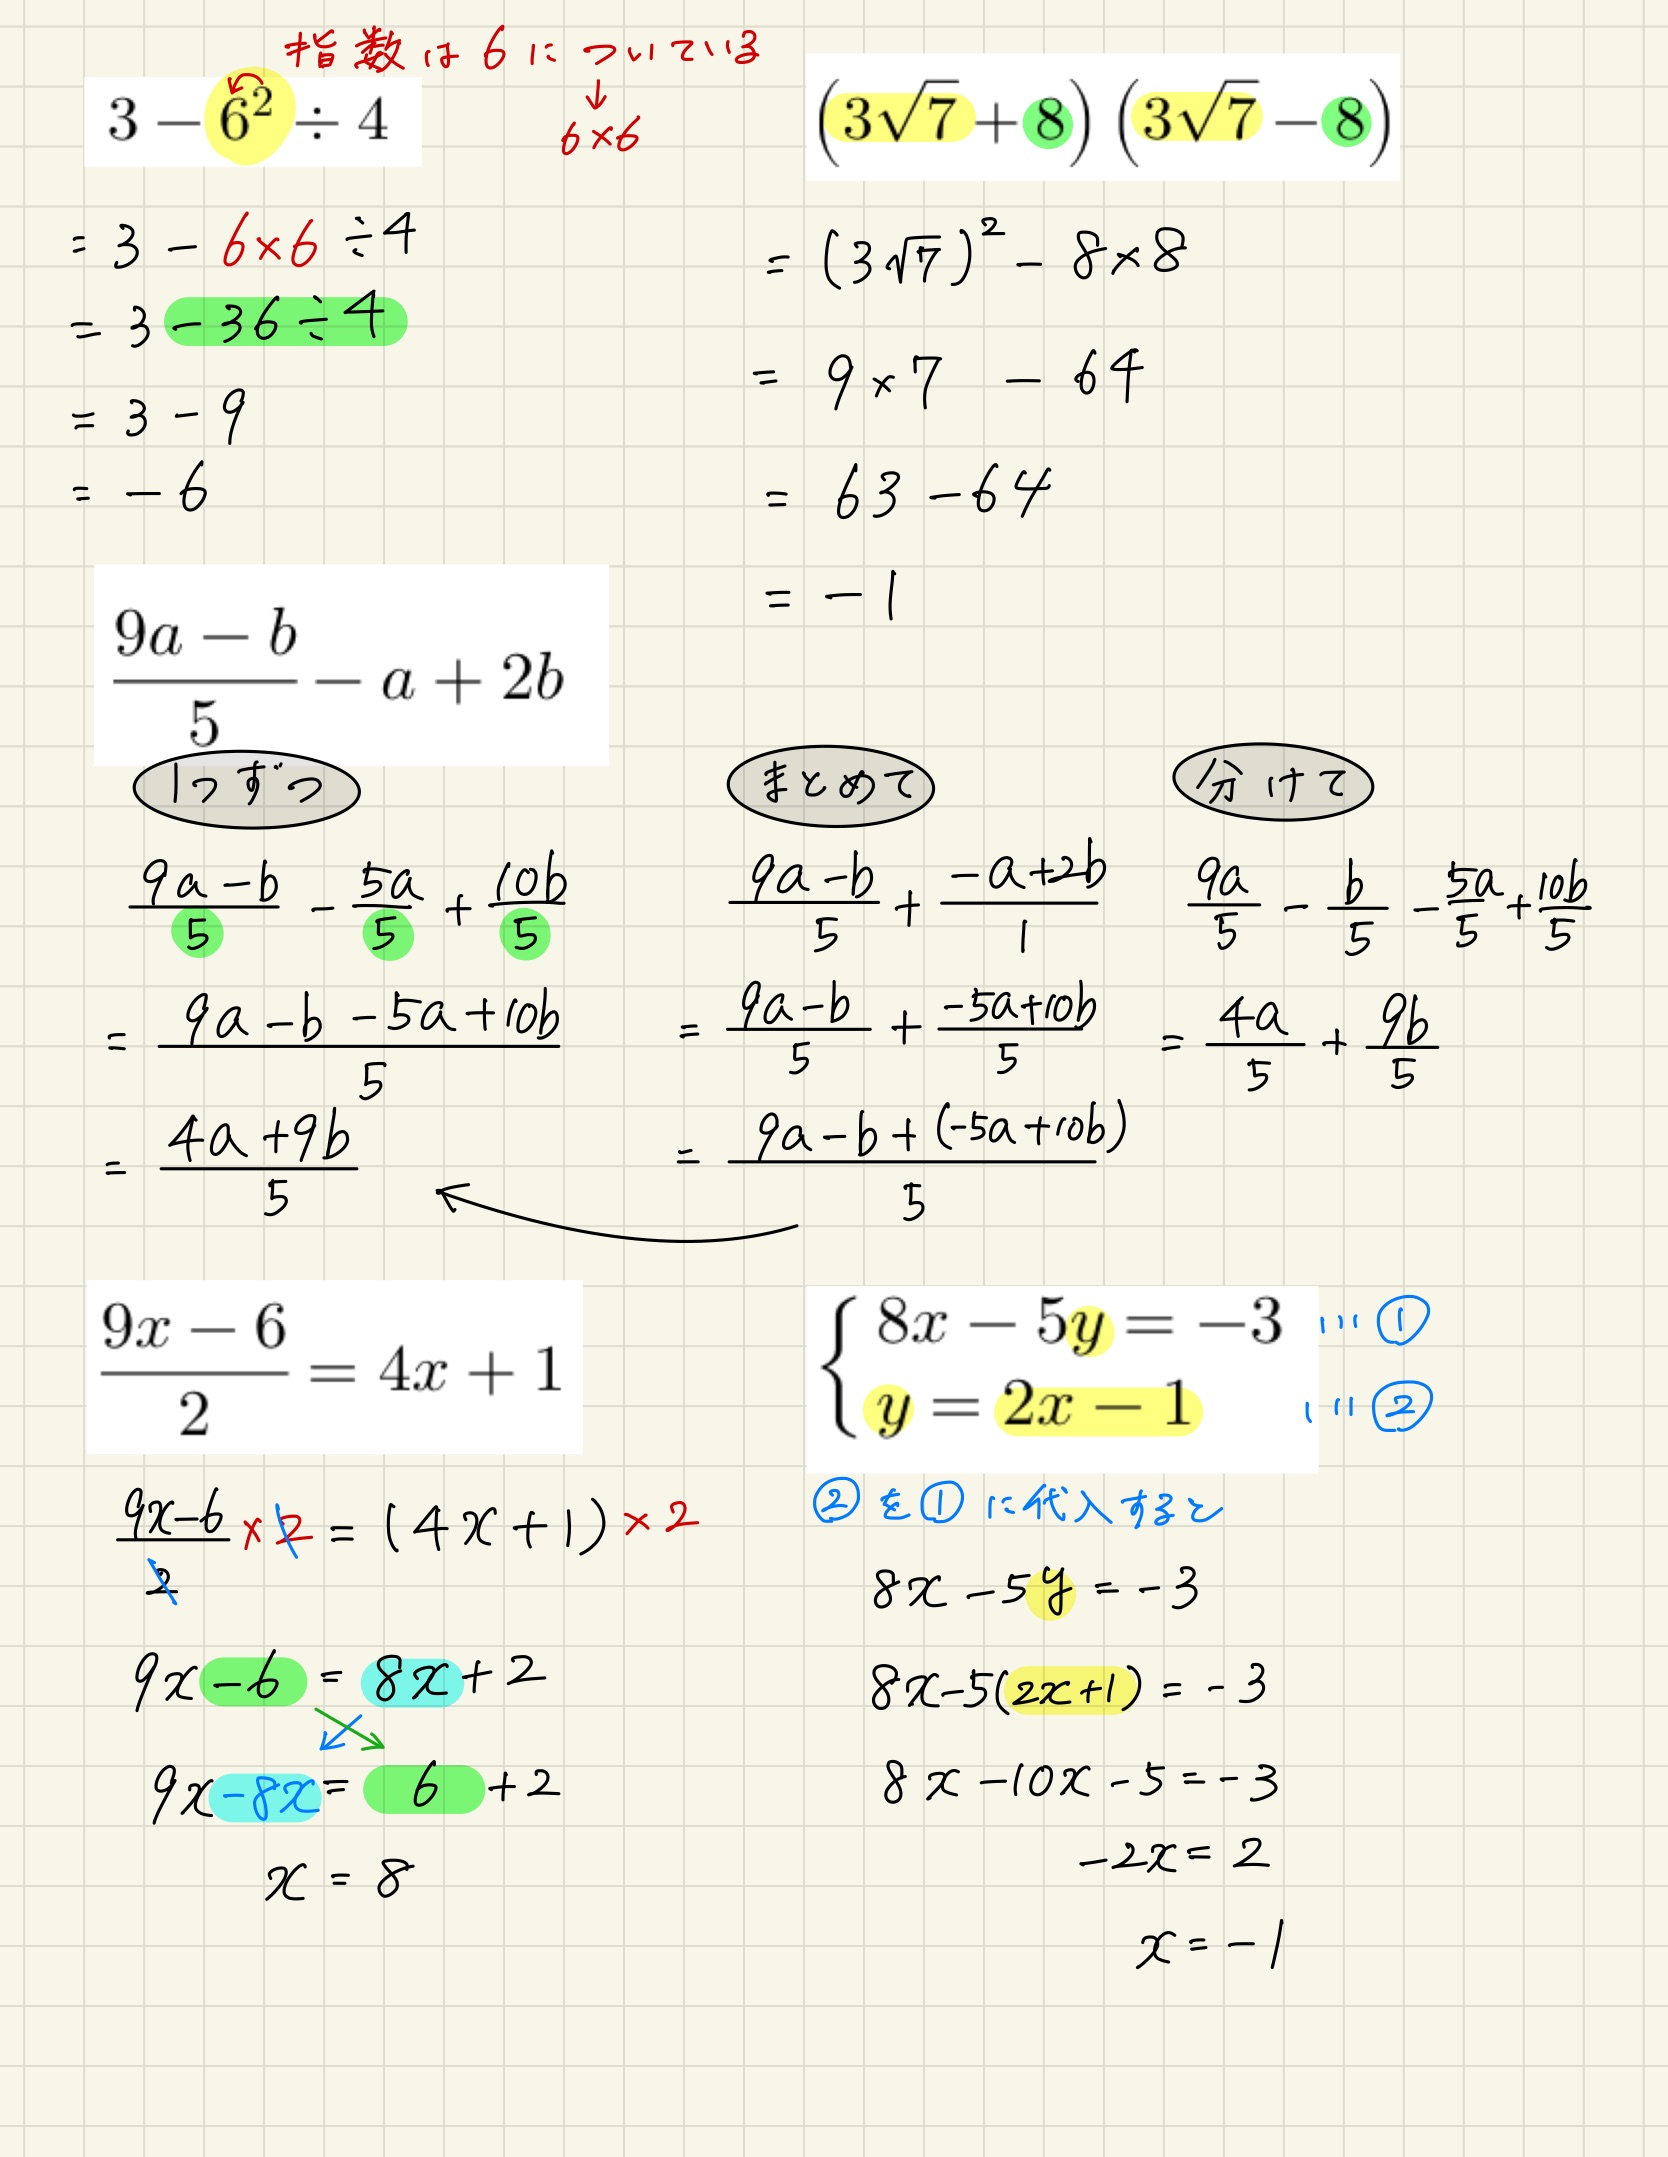 指数は6についている
↓
6×6
3 − 6² ÷ 4
= 3 − 6×6 ÷4
= 3 − 36 ÷ 4
= 3 − 9
= −6
(3√7 + 8) (3√7 − 8)
= (3√7)² − 8×8
= 9×7 − 64
= 63 − 64
= −1
(9a − b)/5 − a + 2b
1つずつ
(9a−b)/5 − 5a/5 + 10b/5
= (9a−b −5a+10b)/5
= (4a+9b)/5
まとめて
(9a−b)/5 + (−a+2b)/1
= (9a−b)/5 + (−5a+10b)/5
= (9a−b+(−5a+10b))/5
分けて
9a/5 − b/5 − 5a/5 + 10b/5
= 4a/5 + 9b/5
(9x − 6)/2 = 4x + 1
(9x−6)/2 ×2 = (4x+1)×2
9x−6 = 8x+2
9x−8x = 6 +2
x = 8
8x − 5y = −3 … ①
y = 2x − 1 … ②
②を①に代入すると
8x −5y = −3
8x−5(2x+1) = −3
8x −10x −5 = −3
−2x = 2
x = −1